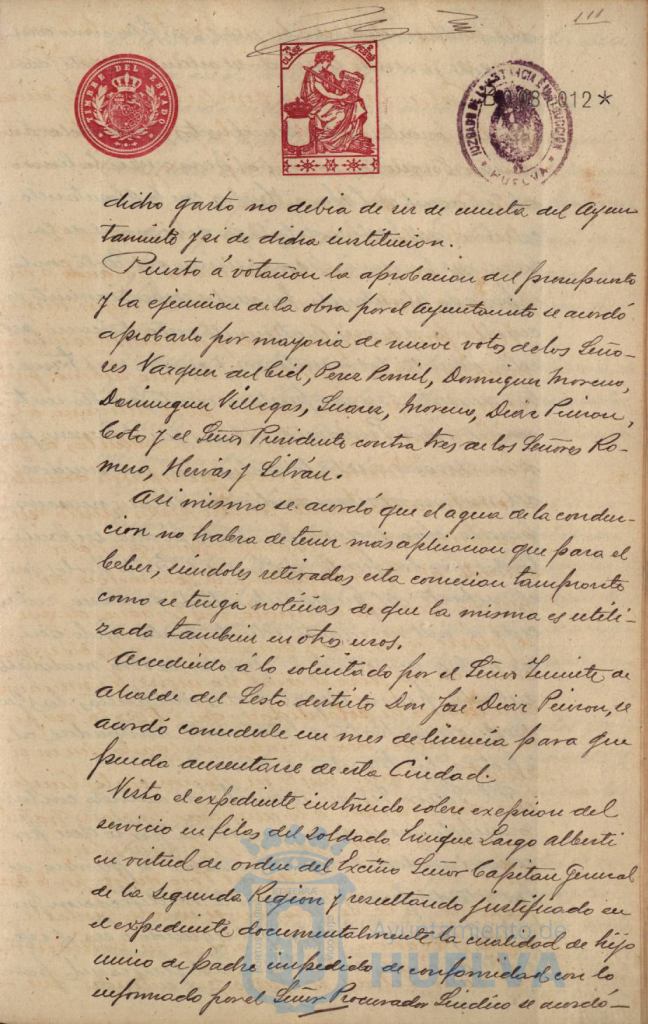 111
TIMBRE DEL ESTADO
CLASE
PESETAS
JUZGADO DE INSTANCIA E INSTRUCCION
HUELVA
012*
dicho gasto no debia de ser de cuenta del Ayun-
tamiento y si de dicha institucion.
Puesto á votacion la aprobacion del presupuesto
y la ejecucion de la obra por el Ayuntamiento se acordó
aprobarlo por mayoria de nueve votos de los Seño-
res Vazquez del Cid, Perez Pomil, Dominguez Moreno,
Dominguez Villegas, Suarez, Moreno, Diaz Pinzon,
Coto y el Señor Presidente contra tres de los Señores Ro-
mero, Hervás y Silván.
Asi mismo se acordó que el agua de la conduc-
cion no habra de tener más aplicacion que para el
beber, siendoles retirados esta concesion tan pronto
como se tenga noticias de que la misma es utili-
zada tambien en otros usos.
Accediendo á lo solicitado por el Señor Teniente de
Alcalde del Sesto distrito Don José Diaz Pinzon, se
acordó concederle un mes de licencia para que
pueda ausentarse de esta Ciudad.
Visto el expediente instruido sobre exepcion del
servicio en filas del soldado Enrique Largo Alberti
en virtud de orden del Excmo Señor Capitan General
de la Segunda Region y resultando justificado en
el expediente documentalmente la cualidad de hijo
unico de padre impedido de conformidad con lo
informado por el Señor Procurador Sindico se acordó-
Ayuntamiento de
HUELVA